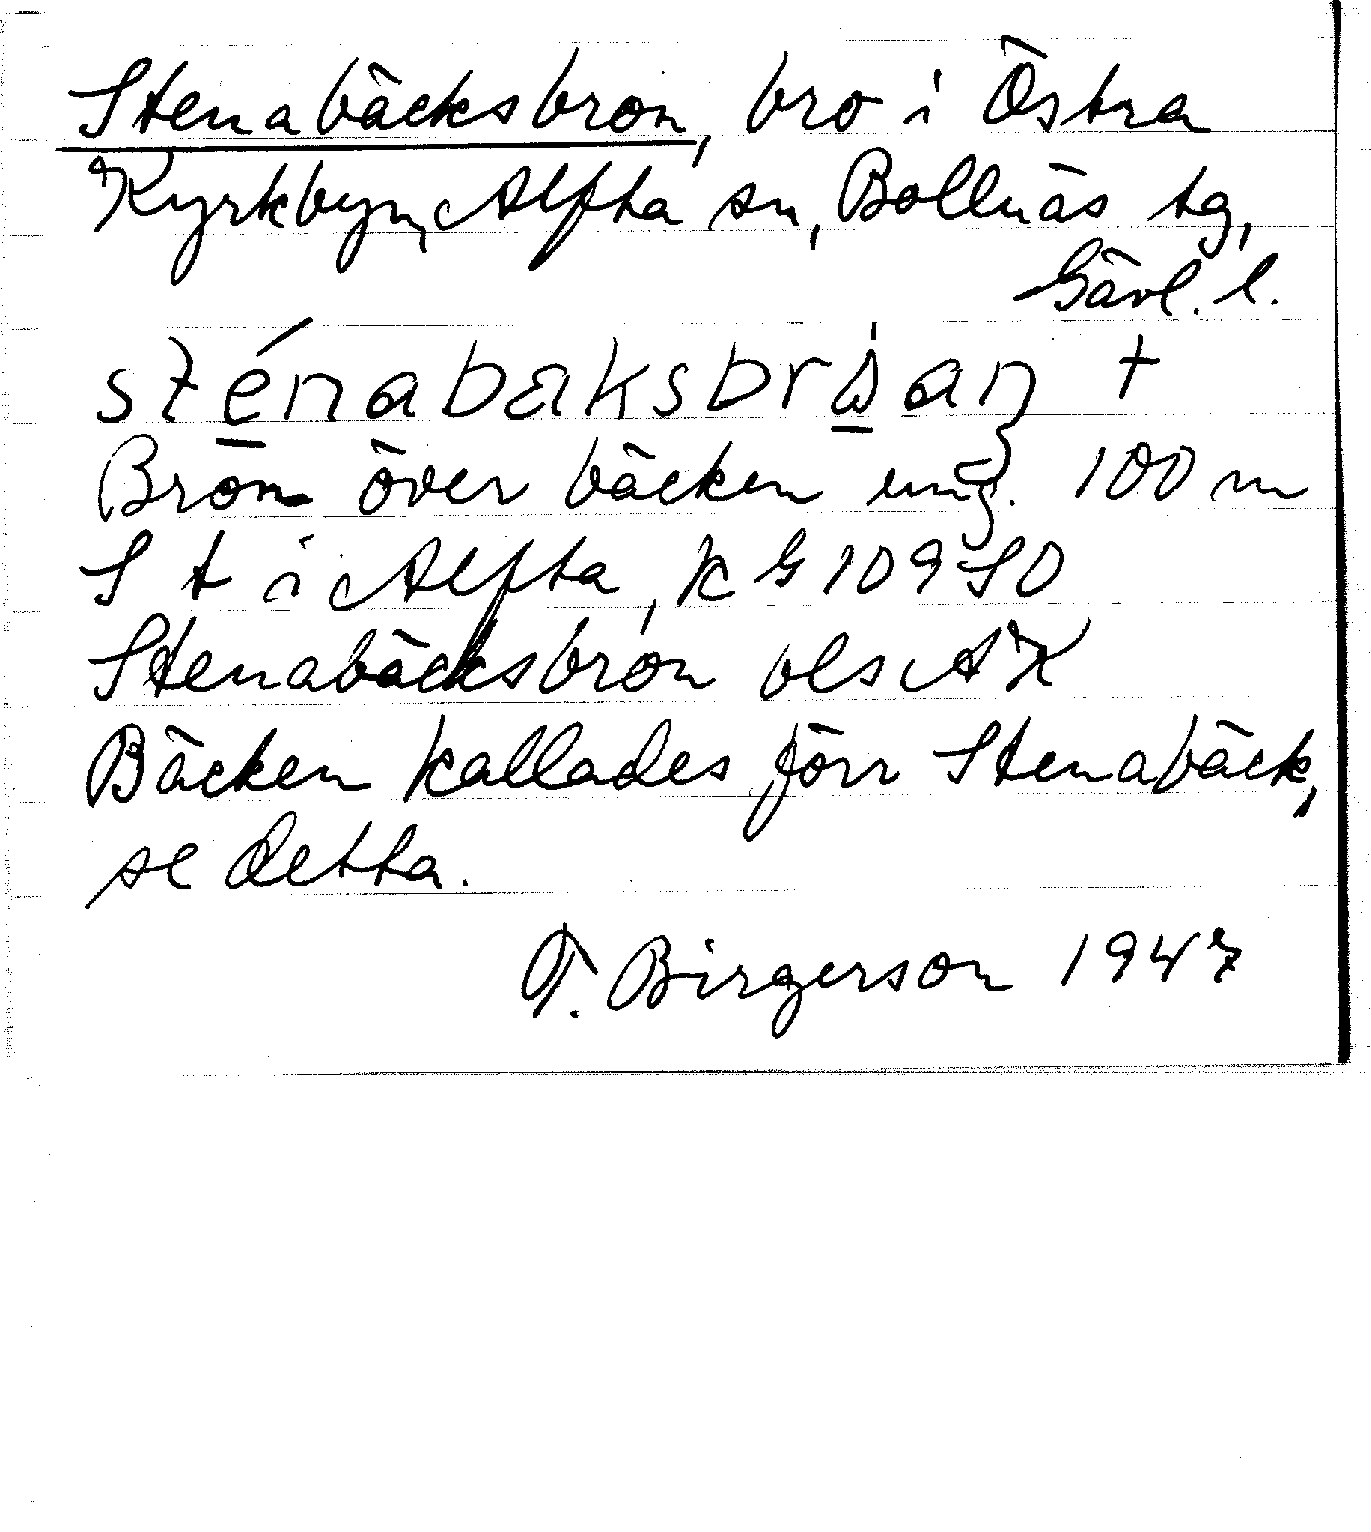 Stenabäcksbron, bro i Östra
Kyrkbyn, Alfta sn, Bollnäs tg,
Gävl. l.
Bron över bäcken ung. 100 m
S t i Alfta, K G 109 SO
Stenabäcksbron bls AK
Bäcken kallades förr Stenabäck,
se detta.
T. Birgerson 1947